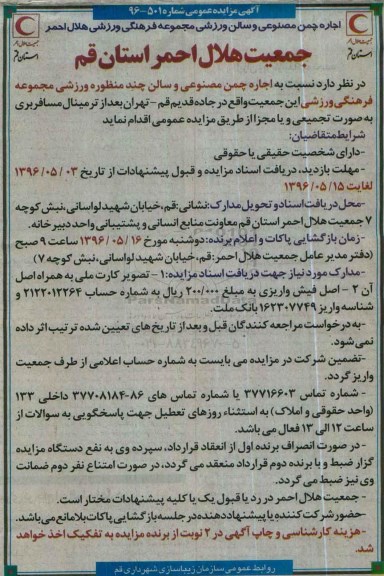 آگهی مزایده عمومی شماره ۵۰۱-۹۶
اجاره چمن مصنوعی و سالن ورزشی مجموعه فرهنگی ورزشی هلال احمر
جمعیت هلال احمر استان قم
جمعیت هلال احمر
استان قم
جمعیت هلال احمر
استان قم
در نظر دارد نسبت به اجاره چمن مصنوعی و سالن چند منظوره ورزشی مجموعه
فرهنگی ورزشی این جمعیت واقع در جاده قدیم قم - تهران بعد از ترمینال مسافربری
به صورت تجمیعی و یا مجزا از طریق مزایده عمومی اقدام نماید
شرایط متقاضیان:
-دارای شخصیت حقیقی یا حقوقی
- مهلت بازدید، دریافت اسناد مزایده و قبول پیشنهادات از تاریخ ۰۳ / ۰۵ / ۱۳۹۶
لغایت ۱۵ / ۰۵ / ۱۳۹۶
-محل دریافت اسناد و تحویل مدارک: نشانی: قم، خیابان شهید لواسانی، نبش کوچه
۷ جمعیت هلال احمر استان قم معاونت منابع انسانی و پشتیبانی واحد دبیرخانه.
- زمان بازگشایی پاکات و اعلام برنده: دوشنبه مورخ ۱۶ / ۰۵ / ۱۳۹۶ ساعت ۹ صبح
(دفتر مدیر عامل جمعیت هلال احمر: قم، خیابان شهید لواسانی، نبش کوچه ۷)
-مدارک مورد نیاز جهت دریافت اسناد مزایده: ۱ - تصویر کارت ملی به همراه اصل
آن ۲ - اصل فیش واریزی به مبلغ ۲۰۰/۰۰۰ ریال به شماره حساب ۲۱۲۲۰۱۲۲۶۴ و
شناسه واریز ۱۶۲۳۰۷۷۴۹ بانک ملت.
-به درخواست مراجعه کنندگان قبل و بعد از تاریخ های تعیین شده ترتیب اثر داده
نمی شود.
-تضمین شرکت در مزایده می بایست به شماره حساب اعلامی از طرف جمعیت
واریز گردد.
- شماره تماس ۳۷۷۱۶۶۰۳ یا شماره تماس های ۸۶-۳۷۷۰۸۱۸۴ داخلی ۱۳۳
(واحد حقوقی و املاک) به استثناء روزهای تعطیل جهت پاسخگویی به سوالات از
ساعت ۱۲ الی ۱۳ فعال می باشد.
- در صورت انصراف برنده اول از انعقاد قرارداد، سپرده وی به نفع دستگاه مزایده
گزار ضبط و با برنده دوم قرارداد منعقد می گردد، در صورت امتناع نفر دوم ضمانت
وی نیز ضبط می گردد.
- جمعیت هلال احمر در رد یا قبول یک یا کلیه پیشنهادات مختار است.
-حضور شرکت کننده یا پیشنهاد دهنده در جلسه بازگشایی پاکات بلامانع می باشد.
-هزینه کارشناسی و چاپ آگهی در ۲ نوبت از برنده مزایده به تفکیک اخذ خواهد
شد.
روابط عمومی سازمان زیباسازی شهرداری قم